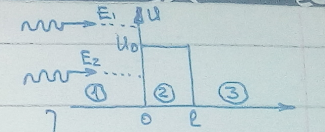 E₁ U
U₀
E₂
① ② ③
0 l